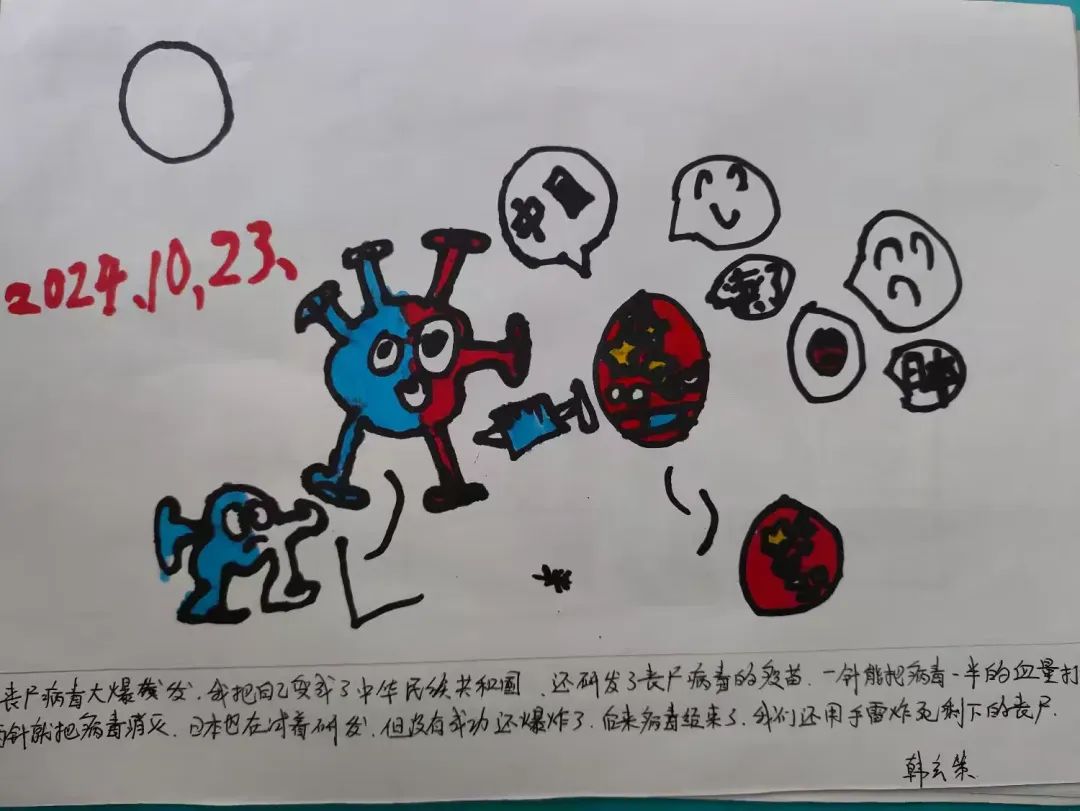 中国
2024.10.23、
日本
丧尸病毒大爆发，我把自己变成了中华民族共和国，还研发了丧尸病毒的疫苗，一针能把病毒一半的血量打
针就把病毒消灭，日本也在试着研发，但没有成功还爆炸了，后来病毒结束了，我们还用手雷炸死剩下的丧尸
韩玄策